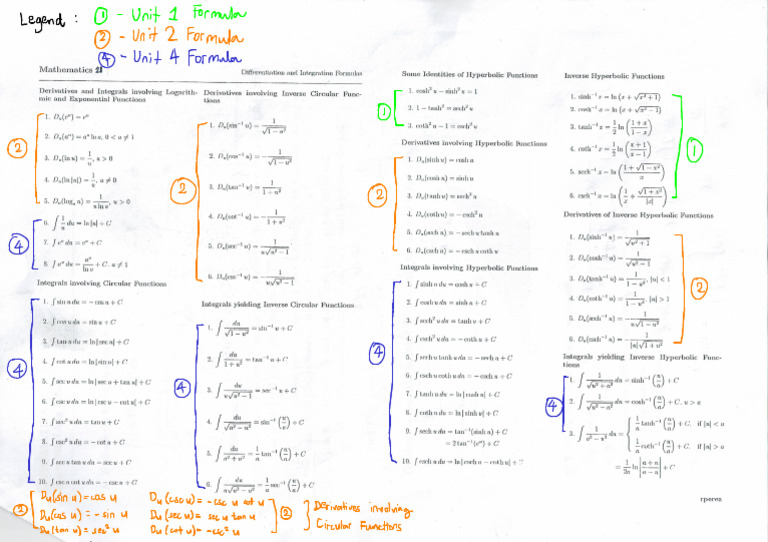 Legend : ① - Unit 1 Formula
② - Unit 2 Formula
④ - Unit 4 Formula
Mathematics 21
Differentiation and Integration Formulas
Derivatives and Integrals involving Logarithmic and Exponential Functions
1. Dₓ(eᵘ) = eᵘ
2. Dᵤ(aᵘ) = aᵘ ln a, 0 < a ≠ 1
3. Dᵤ(ln u) = 1/u, u > 0
4. Dᵤ(ln |u|) = 1/u, u ≠ 0
5. Dᵤ(logₐ u) = 1/(u ln a), u > 0
②
6. ∫ 1/u du = ln |u| + C
7. ∫ eᵘ du = eᵘ + C
8. ∫ aᵘ du = aᵘ/ln a + C, a ≠ 1
④
Integrals involving Circular Functions
1. ∫ sin u du = − cos u + C
2. ∫ cos u du = sin u + C
3. ∫ tan u du = ln | sec u| + C
4. ∫ cot u du = ln | sin u| + C
5. ∫ sec u du = ln | sec u + tan u| + C
6. ∫ csc u du = ln | csc u − cot u| + C
7. ∫ sec² u du = tan u + C
8. ∫ csc² u du = − cot u + C
9. ∫ sec u tan u du = sec u + C
10. ∫ csc u cot u du = − csc u + C
④
Derivatives involving Inverse Circular Functions
1. Dᵤ(sin⁻¹ u) = 1/√(1 − u²)
2. Dᵤ(cos⁻¹ u) = −1/√(1 − u²)
3. Dᵤ(tan⁻¹ u) = 1/(1 + u²)
4. Dᵤ(cot⁻¹ u) = −1/(1 + u²)
5. Dᵤ(sec⁻¹ u) = 1/(u√(u² − 1))
6. Dᵤ(csc⁻¹ u) = −1/(u√(u² − 1))
②
Integrals yielding Inverse Circular Functions
1. ∫ du/√(1 − u²) = sin⁻¹ u + C
2. ∫ du/(1 + u²) = tan⁻¹ u + C
3. ∫ du/(u√(u² − 1)) = sec⁻¹ u + C
4. ∫ du/√(a² − u²) = sin⁻¹ (u/a) + C
5. ∫ du/(a² + u²) = 1/a tan⁻¹ (u/a) + C
6. ∫ du/(u√(u² − a²)) = 1/a sec⁻¹ (u/a) + C
④
Some Identities of Hyperbolic Functions
1. cosh² u − sinh² u = 1
2. 1 − tanh² u = sech² u
3. coth² u − 1 = csch² u
①
Derivatives involving Hyperbolic Functions
1. Dᵤ(sinh u) = cosh u
2. Dᵤ(cosh u) = sinh u
3. Dᵤ(tanh u) = sech² u
4. Dᵤ(coth u) = − csch² u
5. Dᵤ(sech u) = − sech u tanh u
6. Dᵤ(csch u) = − csch u coth u
②
Integrals involving Hyperbolic Functions
1. ∫ sinh u du = cosh u + C
2. ∫ cosh u du = sinh u + C
3. ∫ sech² u du = tanh u + C
4. ∫ csch² u du = − coth u + C
5. ∫ sech u tanh u du = − sech u + C
6. ∫ csch u coth u du = − csch u + C
7. ∫ tanh u du = ln | cosh u| + C
8. ∫ coth u du = ln | sinh u| + C
9. ∫ sech u du = tan⁻¹(sinh u) + C
= 2 tan⁻¹(eᵘ) + C
10. ∫ csch u du = ln | csch u − coth u| + C
④
Inverse Hyperbolic Functions
1. sinh⁻¹ x = ln (x + √(x² + 1))
2. cosh⁻¹ x = ln (x + √(x² − 1))
3. tanh⁻¹ x = 1/2 ln ((1 + x)/(1 − x))
4. coth⁻¹ x = 1/2 ln ((x + 1)/(x − 1))
5. sech⁻¹ x = ln ((1 + √(1 − x²))/x)
6. csch⁻¹ x = ln (1/x + √(1 + x²)/|x|)
①
Derivatives of Inverse Hyperbolic Functions
1. Dᵤ(sinh⁻¹ u) = 1/√(u² + 1)
2. Dᵤ(cosh⁻¹ u) = 1/√(u² − 1)
3. Dᵤ(tanh⁻¹ u) = 1/(1 − u²), |u| < 1
4. Dᵤ(coth⁻¹ u) = 1/(1 − u²), |u| > 1
5. Dᵤ(sech⁻¹ u) = −1/(u√(1 − u²))
6. Dᵤ(csch⁻¹ u) = −1/(|u|√(1 + u²))
②
Integrals yielding Inverse Hyperbolic Functions
1. ∫ du/√(u² + a²) = sinh⁻¹ (u/a) + C
2. ∫ 1/√(u² − a²) du = cosh⁻¹ (u/a) + C, u > a
3. ∫ 1/(a² − u²) du = { 1/a tanh⁻¹ (u/a) + C, if |u| < a
1/a coth⁻¹ (u/a) + C, if |u| > a
= 1/2a ln |(a + u)/(a − u)| + C
④
rperez
② Dᵤ(sin u) = cos u Dᵤ(csc u) = −csc u cot u
Dᵤ(cos u) = − sin u Dᵤ(sec u) = sec u tan u
Dᵤ(tan u) = sec² u Dᵤ(cot u) = −csc² u
② Derivatives involving
Circular Functions